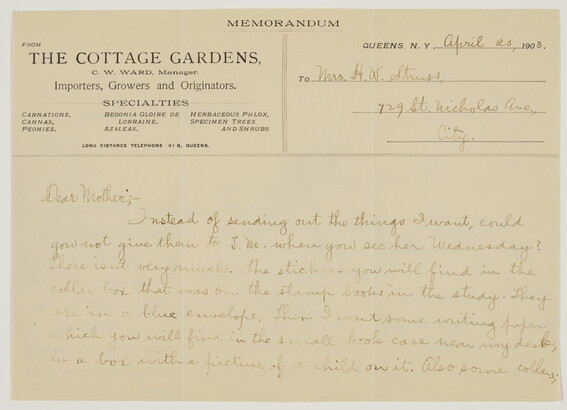 MEMORANDUM
FROM
THE COTTAGE GARDENS,
C. W. WARD, Manager.
Importers, Growers and Originators.
SPECIALTIES
CARNATIONS, BEGONIA GLOIRE DE HERBACEOUS PHLOX,
CANNAS, LORRAINE, SPECIMEN TREES
PEONIES. AZALEAS, AND SHRUBS
LONG DISTANCE TELEPHONE 91 B, QUEENS.
QUEENS, N. Y., April 20, 1903.
TO Mrs. H. W. Struss,
729 St. Nicholas Ave.,
City.
Dear Mother;-
Instead of sending out the things I want, could
you not give them to T. M. when you see her Wednesday?
There isn't very much. The stickers you will find in the
collar box that was on the stamp books in the study. They
are in a blue envelope. Then I want some writing paper
which you will find in the small book-case near my desk,
in a box with a picture of a child on it. Also some collars;